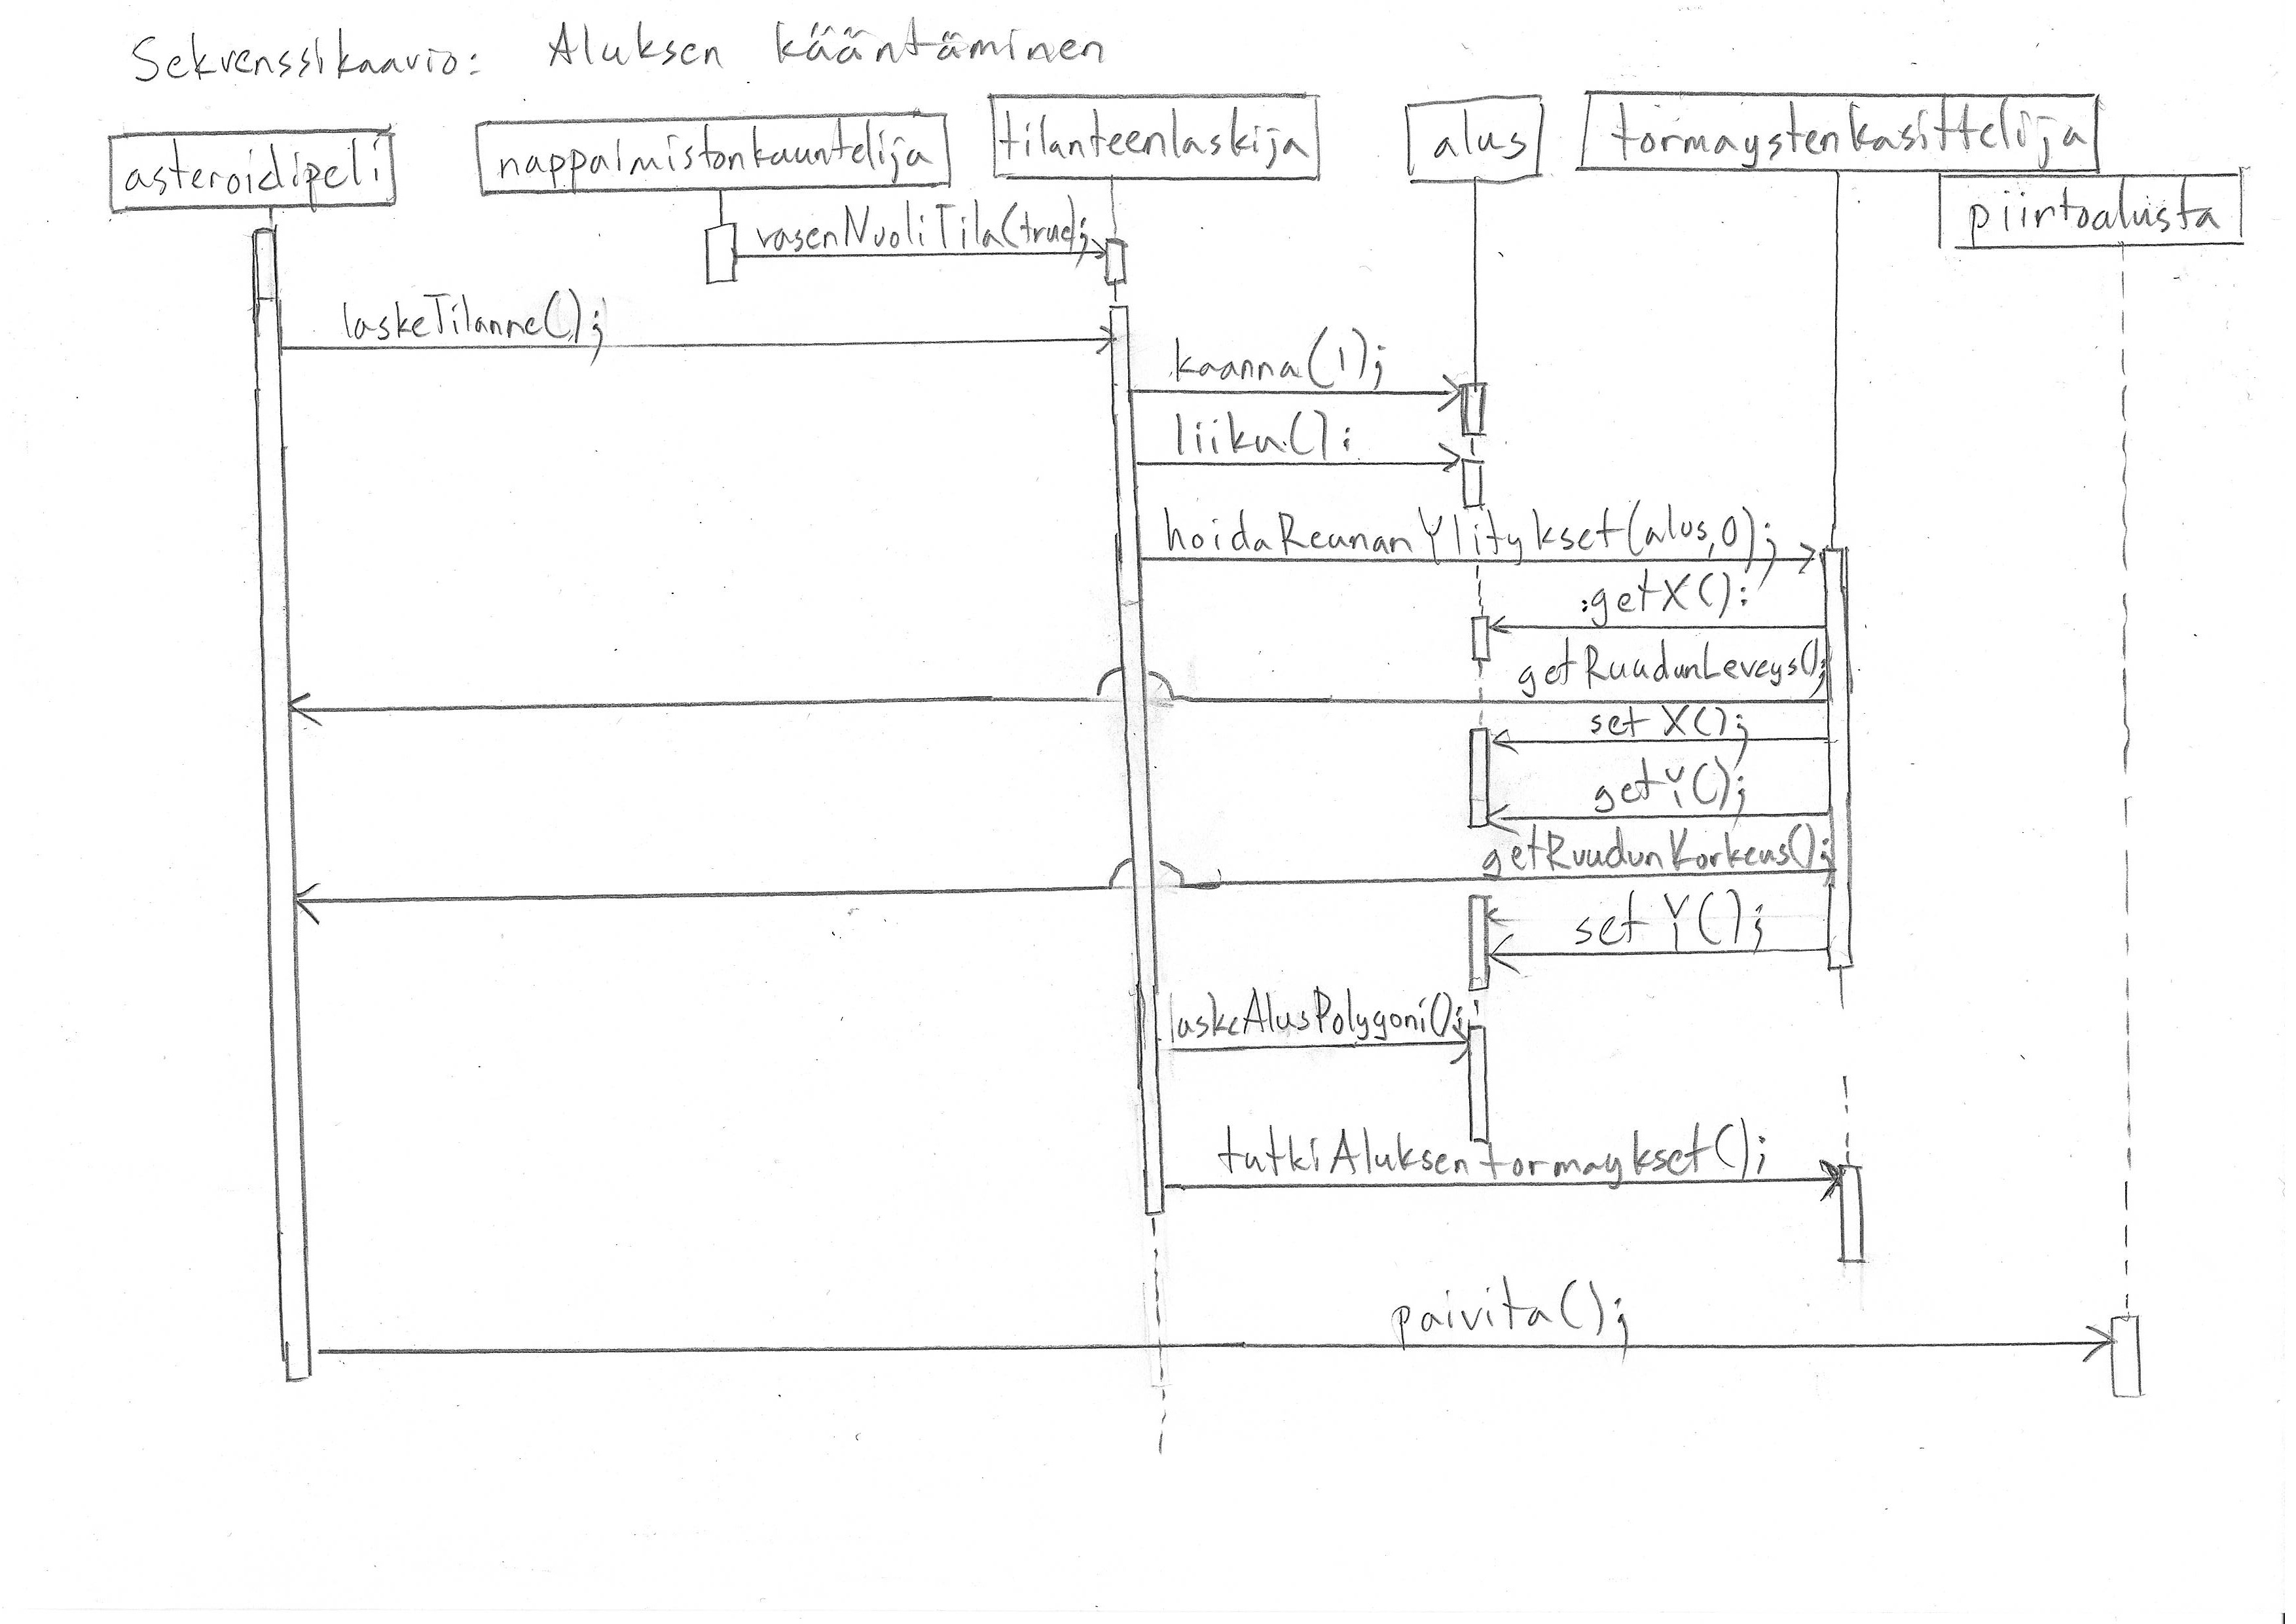 Sekvenssikaavio: Aluksen kääntäminen
asteroidipeli
nappaimistonkuuntelija
tilanteenlaskija
alus
tormaystenkasittelija
piirtoalusta
vasenNuoliTila(true);
laskeTilanne();
kaanna(1);
liiku();
hoidaReunanYlitykset(alus,0);
getX();
getRuudunLeveys();
setX();
getY();
getRuudunKorkeus();
setY();
laskeAlusPolygoni();
tutkiAluksentormaykset();
paivita();